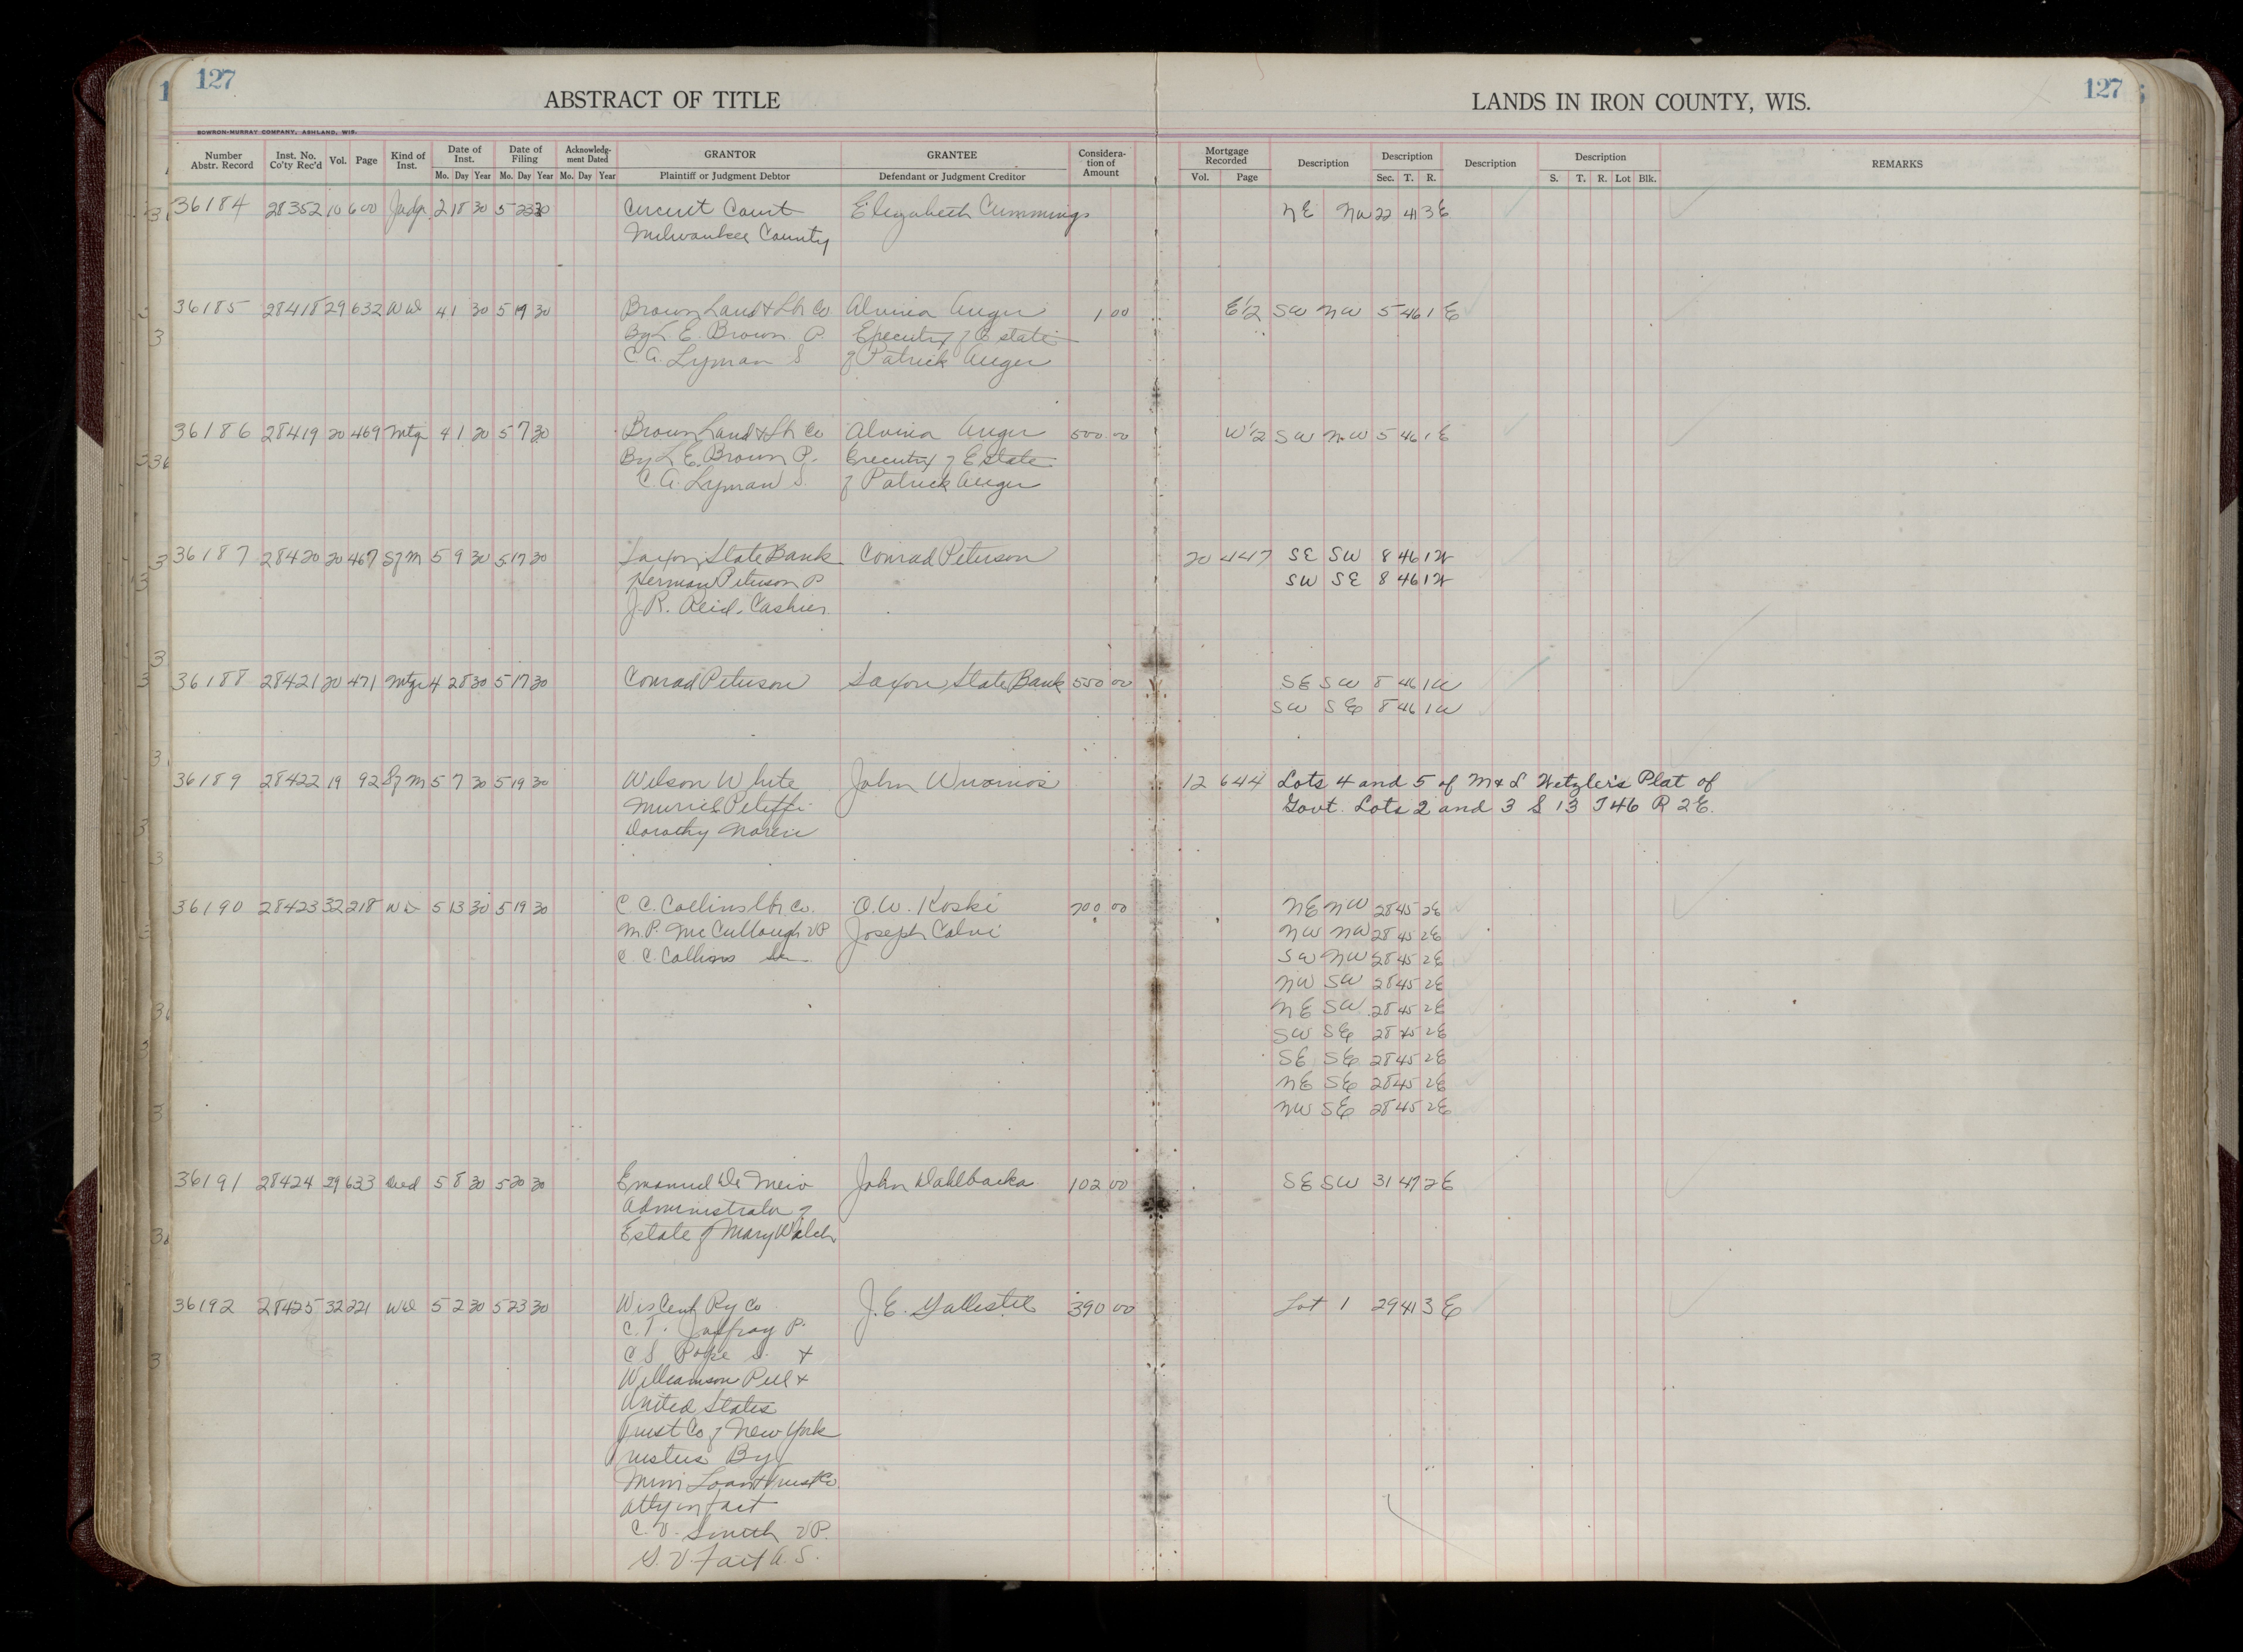 127
ABSTRACT OF TITLE
LANDS IN IRON COUNTY, WIS.
127
BOWRON-MURRAY COMPANY, ASHLAND, WIS.
Number Abstr. Record Inst. No. Co'ty Rec'd Vol. Page Kind of Inst. Date of Inst. Date of Filing Acknowledg-ment Dated GRANTOR GRANTEE Considera-tion of Amount Mortgage Recorded Description Description Description Description REMARKS
Mo. Day Year Mo. Day Year Mo. Day Year Plaintiff or Judgment Debtor Defendant or Judgment Creditor Vol. Page Sec. T. R. S. T. R. Lot Blk.
36184 28352 10 600 Judg. 2 18 30 5 23 30 Circuit Court Elizabeth Cummings NE NW 22 41 3E
Milwaukee County
36185 28418 29 632 WD 4 1 30 5 19 30 Brown Land & Lbr Co Alvina Auger 1 00 E1/2 SW NW 5 46 1 E
By L. E. Brown P. Executrix of Estate
C. A. Lyman S of Patrick Auger
36186 28419 20 469 Mtg 4 1 30 5 7 30 Brown Land & Lbr Co Alvina Auger 500 00 W1/2 SW NW 5 46 1 E
By L. E. Brown P. Executrix of Estate
C. A. Lyman S. of Patrick Auger
36187 28420 20 467 Sf M 5 9 30 5 17 30 Saxon State Bank Conrad Peterson 20 447 SE SW 8 46 1W
Herman Peterson P SW SE 8 46 1W
J. R. Reid, Cashier
36188 28421 20 471 Mtge 4 28 30 5 17 30 Conrad Peterson Saxon State Bank 550 00 SE SW 8 46 1W
SW SE 8 46 1W
36189 28422 19 92 Sf M 5 7 30 5 19 30 Wilson White John 12 644 Lots 4 and 5 of M & L Hetzler's Plat of
Muriel Govt. Lots 2 and 3 S 13 T 46 R 2E.
Dorothy
36190 28423 32 218 WD 5 13 30 5 19 30 C. C. Collins Lbr Co. O. W. Koski 700 00 NE NW 28 45 2E
M. P. McCullough VP Joseph Calvi NW NW 28 45 2E
C. C. Collins Sec SW NW 28 45 2E
NW SW 28 45 2E
NE SW 28 45 2E
SW SE 28 45 2E
SE SE 28 45 2E
NE SE 28 45 2E
NW SE 28 45 2E
36191 28424 29 633 Deed 5 8 30 5 20 30 Emanuel De Meio John Dahlbacka 102 00 SE SW 31 47 2E
Administrator of
Estate of Mary Walch
36192 28425 32 221 WD 5 2 30 5 23 30 Wis Cent Ry Co J. E. 390 00 Lot 1 29 41 3 E
C. T. Jaffray P.
C S Pope S. &
Williamson Pell &
United States
Trust Co of New York
Trustees By
Minn Loan & Trust Co
Atty in fact
C. V. Smith VP.
A. S.